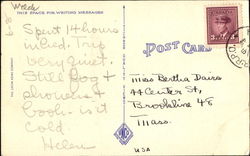 THIS SPACE FOR WRITING MESSAGES
Spent 14 hours
in bed. Trip
very quiet.
Still fog &
cool. is it
cold.
Helen
POST CARD
Miss Bertha Davis
44 Center St,
Brookline 48
Mass.
USA